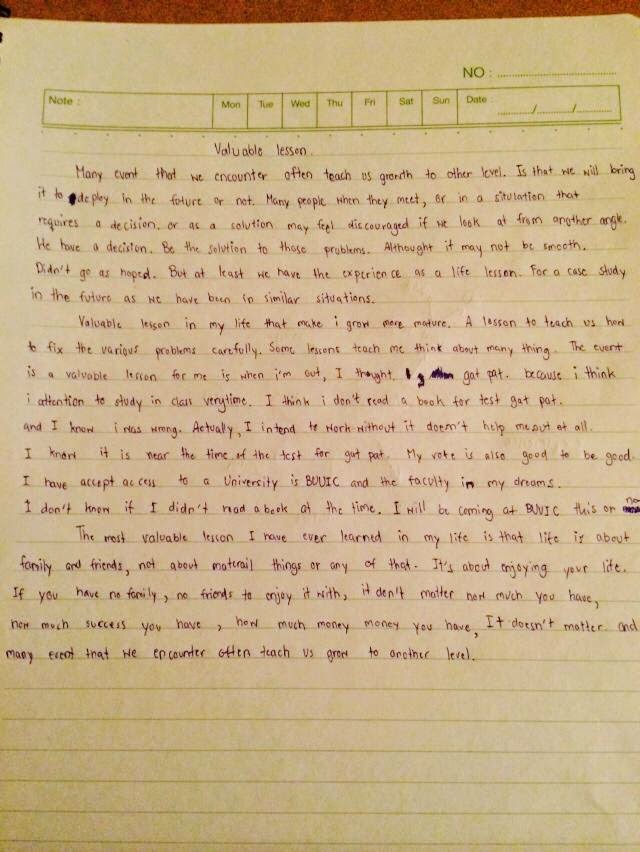 NO :
Note : Mon Tue Wed Thu Fri Sat Sun Date :
Valuable lesson.
Many event that we encounter often teach us growth to other level. Is that we will bring
it to deploy in the future or not. Many people when they meet, or in a situlation that
requires a decision. or as a solution may feel discouraged if we look at from another angle.
He have a decision. Be the solution to those problems. Althought it may not be smooth.
Didn't go as hoped. But at least we have the experience as a life lesson. For a case study
in the future as we have been in similar situations.
Valuable lesson in my life that make i grow more mature. A lesson to teach us how
to fix the various problems carefully. Some lessons teach me think about many thing. The event
is a valuable lesson for me is when i'm out, I thought. gat pat. because i think
i attention to study in class verytime. I think i don't read a book for test gat pat.
and I know i was wrong. Actually, I intend to work without it doesn't help me out at all.
I know it is near the time of the test for gat pat. My vote is also good to be good.
I have accept access to a University is BUUIC and the faculty in my dreams.
I don't know if I didn't read a book at the time. I will be coming at BUUIC this or no
The most valuable lesson I have ever learned in my life is that life is about
family and friends, not about matcrail things or any of that. It's about enjoying your life.
If you have no family, no friends to enjoy it with, it don't matter how much you have,
how much success you have, how much money money you have, It doesn't matter. and
many event that we encounter often teach us grow to another level.